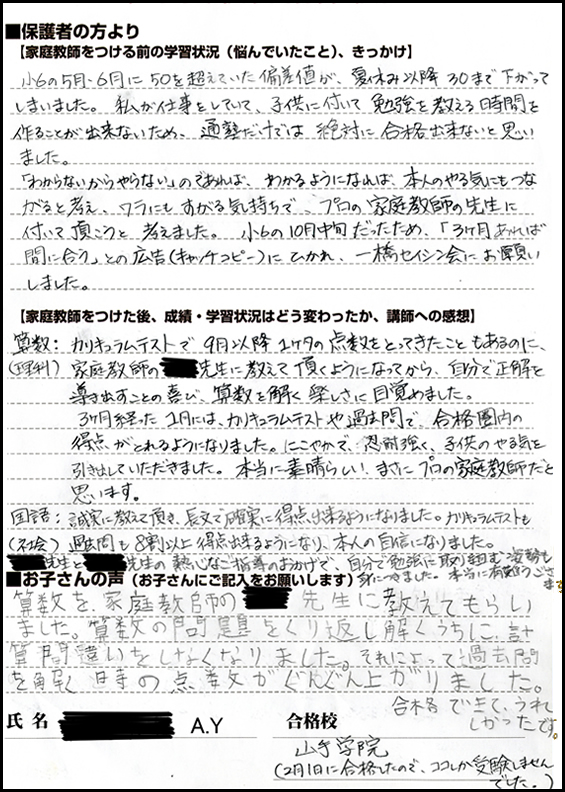 ■保護者の方より
【家庭教師をつける前の学習状況（悩んでいたこと）、きっかけ】
小6の5月・6月に50を超えていた偏差値が、夏休み以降30まで下がって
しまいました。私が仕事をしていて、子供に付いて勉強を教える時間を
作ることが出来ないため、通塾だけでは絶対に合格出来ないと思い
ました。
「わからないからやらない」のであれば、わかるようになれば、本人のやる気にもつな
がると考え、ワラにもすがる気持ちで、プロの家庭教師の先生に
付いて頂こうと考えました。小6の10月中旬だったため、「3ヶ月あれば
間に合う」との広告(キャッチコピー)にひかれ、一橋セイシン会にお願い
しました。
【家庭教師をつけた後、成績・学習状況はどう変わったか、講師への感想】
算数：カリキュラムテストで9月以降1ケタの点数をとってきたこともあるのに、
(理科) 家庭教師の 先生に教えて頂くようになってから、自分で正解を
導き出すことの喜び、算数を解く楽しさに目覚めました。
3ヶ月経った1月には、カリキュラムテストや過去問で、合格圏内の
得点がとれるようになりました。にこやかで、忍耐強く、子供のやる気を
引き出していただきました。本当に素晴らしい、まさにプロの家庭教師だと
思います。
国語：誠実に教えて頂き、長文で確実に得点出来るようになりました。カリキュラムテストも
(社会) 過去問も8割以上得点出来るようになり、本人の自信になりました。
先生と 先生の熱心なご指導のおかげで、自分で勉強に取り組む姿勢も
身につきました。本当に有難うございます
■お子さんの声（お子さんにご記入をお願いします）
算数を、家庭教師の 先生に教えてもらい
ました。算数の問題をくり返し解くうちに、計
算間違いをしなくなりました。それによって過去問
を解く時の点数がぐんぐん上がりました。
合格できて、うれ
しかったです。
氏名 A.Y 合格校
山手学院
(2月1日に合格したので、ココしか受験しません
でした。)